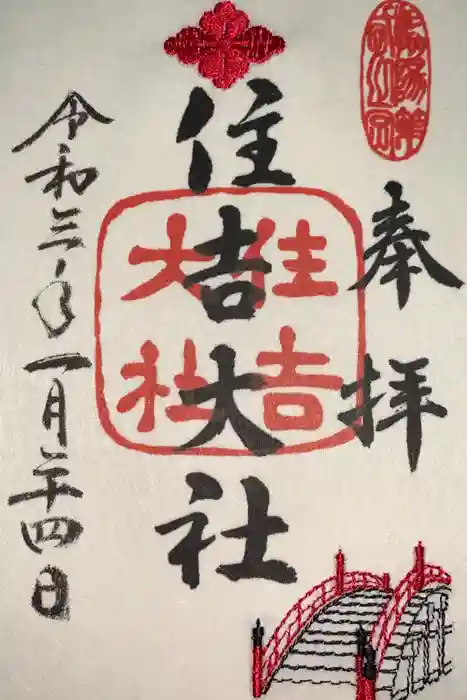 奉拝
住吉大社
住吉大社
令和三年一月二十四日